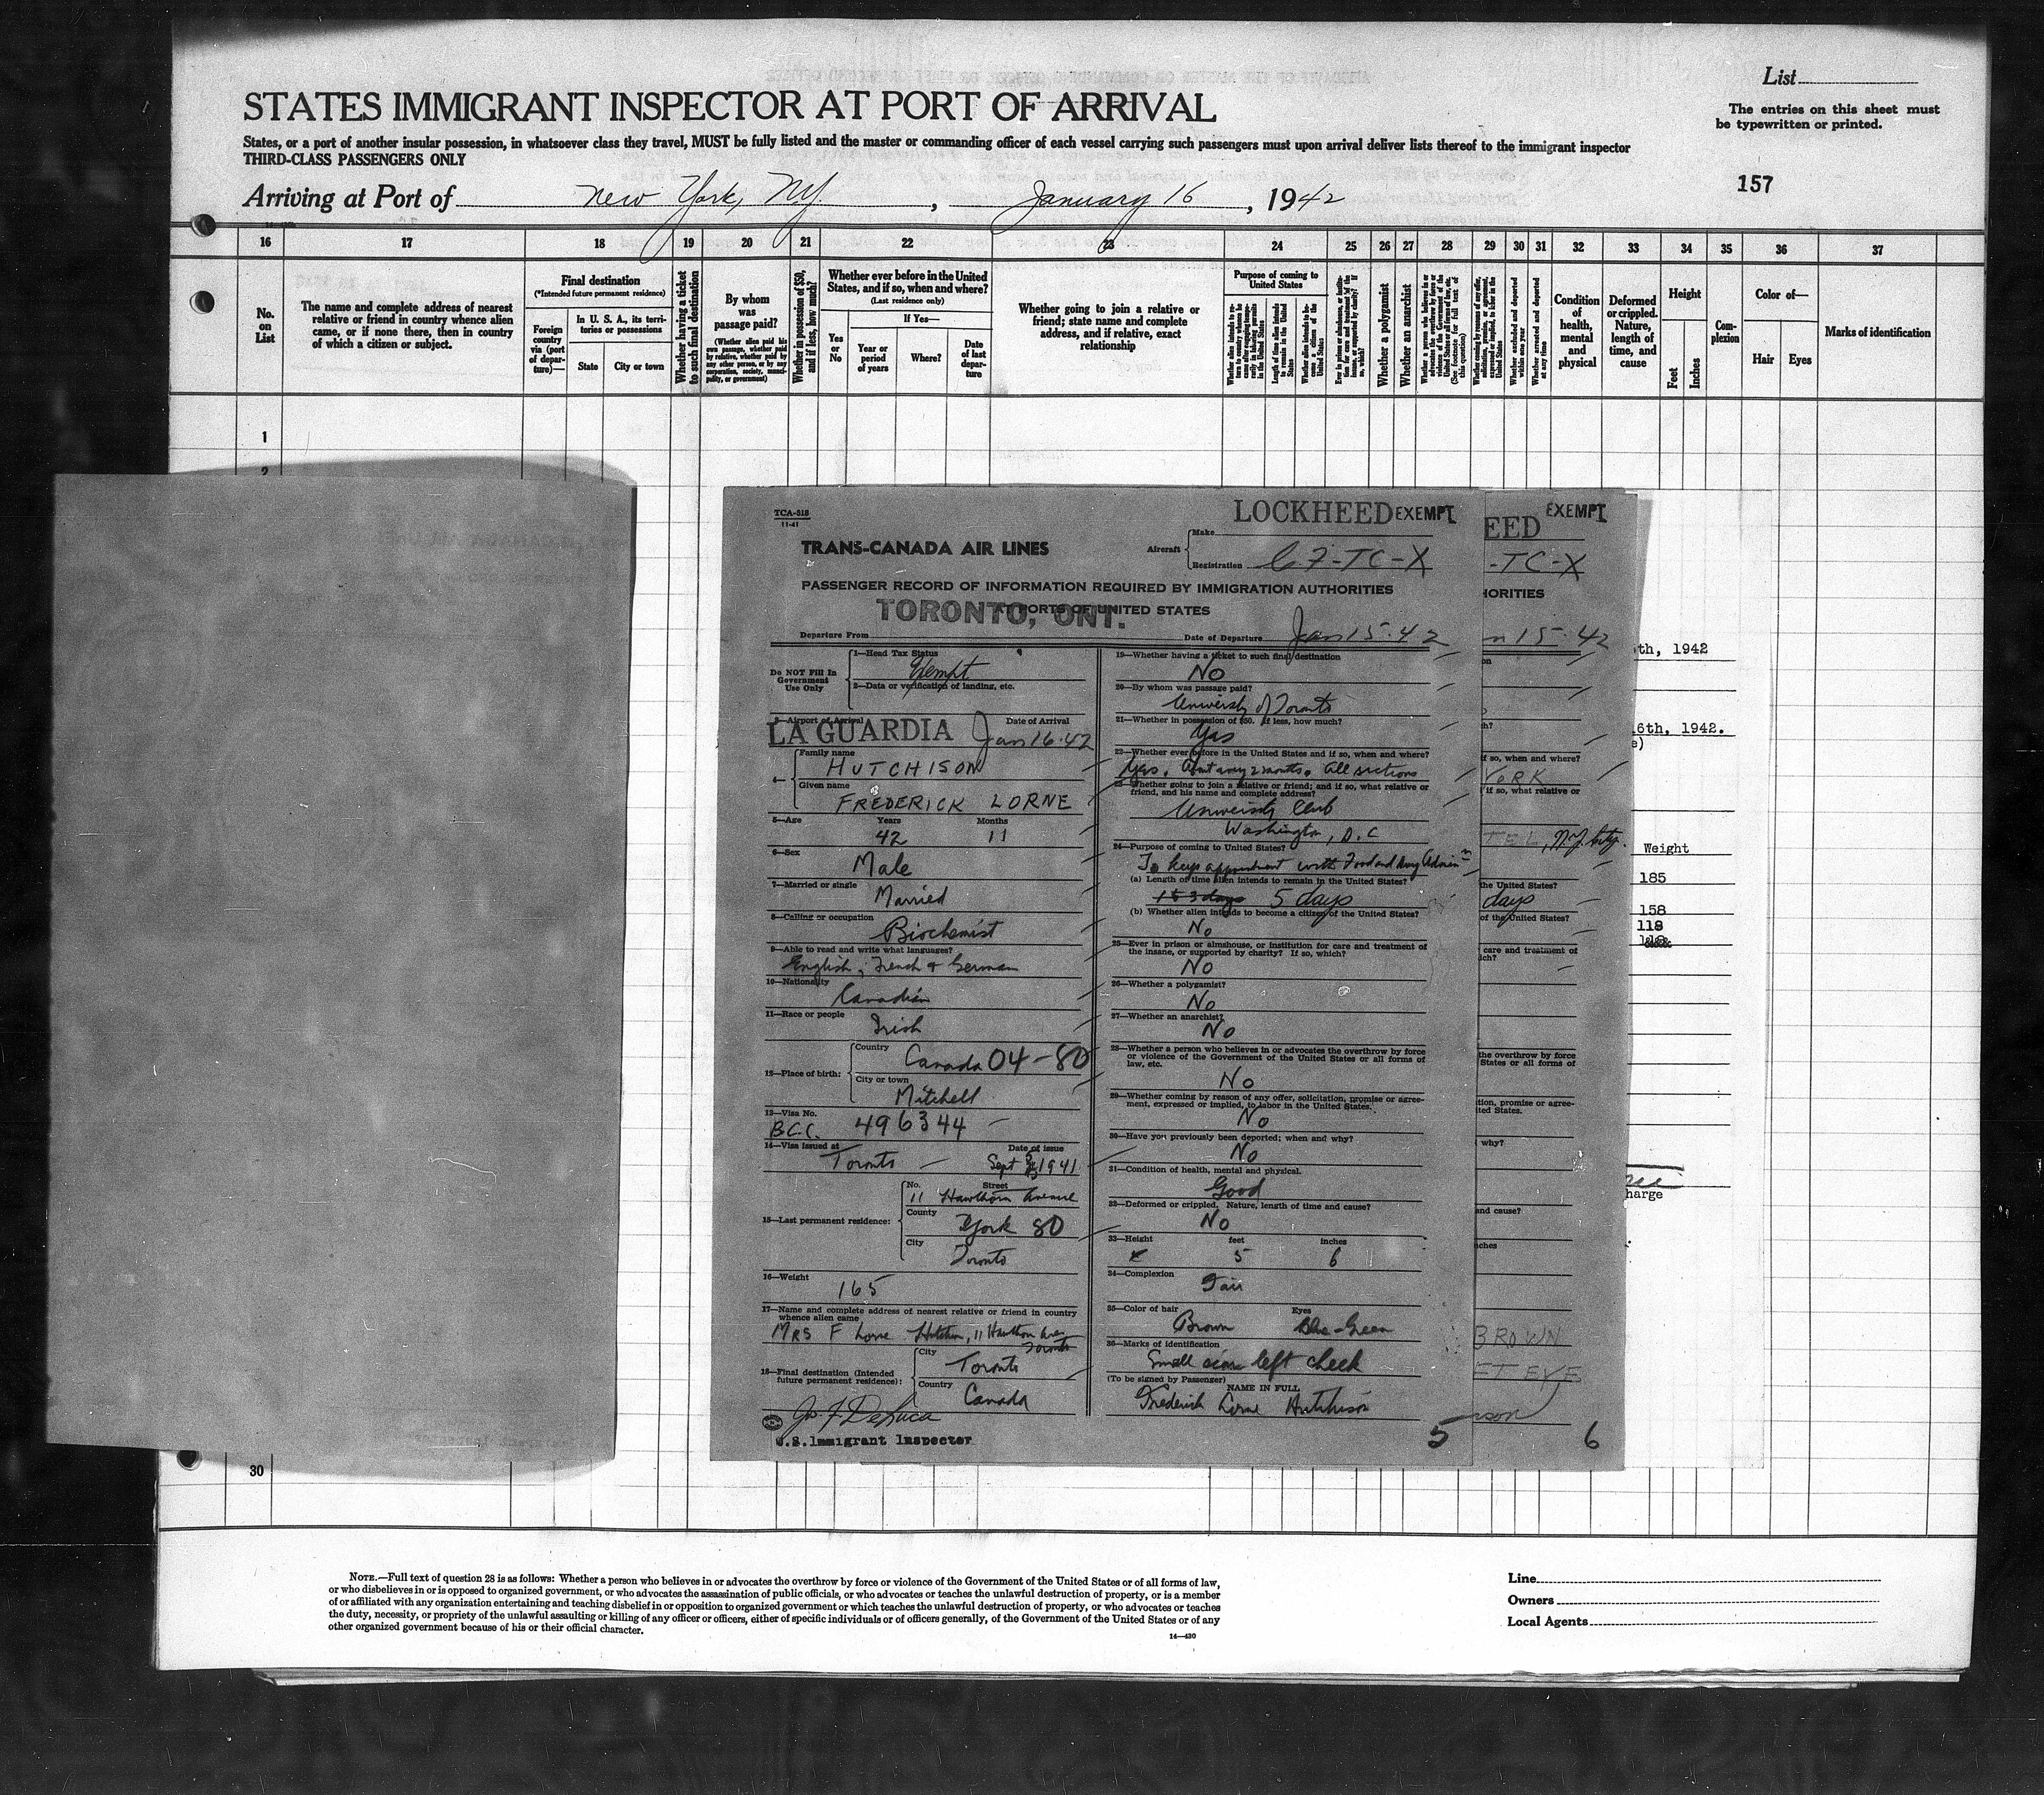 List
STATES IMMIGRANT INSPECTOR AT PORT OF ARRIVAL
The entries on this sheet must
be typewritten or printed.
States, or a port of another insular possession, in whatsoever class they travel, MUST be fully listed and the master or commanding officer of each vessel carrying such passengers must upon arrival deliver lists thereof to the immigrant inspector
THIRD-CLASS PASSENGERS ONLY
157
Arriving at Port of New York, N.Y. , January 16 , 1942
16 17 18 19 20 21 22 23 24 25 26 27 28 29 30 31 32 33 34 35 36 37
No. on List
The name and complete address of nearest
relative or friend in country whence alien
came, or if none there, then in country
of which a citizen or subject.
Final destination
(*Intended future permanent residence)
Foreign country via (port of departure)—
In U. S. A., its territories or possessions
State
City or town
Whether having a ticket to such final destination
By whom was passage paid?
(Whether alien paid his own passage, whether paid by relative, whether paid by any other person, or by any corporation, society, municipality, or government)
Whether in possession of $50, and if less, how much?
Whether ever before in the United
States, and if so, when and where?
(Last residence only)
If Yes—
Yes or No
Year or period of years
Where?
Date of last departure
Whether going to join a relative or
friend; state name and complete
address, and if relative, exact
relationship
Purpose of coming to
United States
Length of time alien intends to remain in the United States
Whether a polygamist
Whether an anarchist
Whether excluded and deported within one year
Whether arrested and deported at any time
Condition of health, mental and physical
Deformed or crippled. Nature, length of time, and cause
Height
Feet
Inches
Complexion
Color of—
Hair
Eyes
Marks of identification
1
2
TCA-518
11-41
LOCKHEED EXEMPT
TRANS-CANADA AIR LINES
Aircraft
Make
Registration CF-TC-X
PASSENGER RECORD OF INFORMATION REQUIRED BY IMMIGRATION AUTHORITIES
AT PORTS OF UNITED STATES
TORONTO, ONT.
Departure From
Date of Departure Jan 15·42
Do NOT Fill In
Government
Use Only
1—Head Tax Status
Exempt
2—Data or verification of landing, etc.
3—Airport of Arrival
Date of Arrival
LA GUARDIA Jan 16·42
4—
Family name
HUTCHISON
Given name
FREDERICK LORNE
5—Age
Years
Months
42 11
6—Sex
Male
7—Married or single
Married
8—Calling or occupation
Biochemist
9—Able to read and write what languages?
English, French & German
10—Nationality
Canadian
11—Race or people
Irish
12—Place of birth:
Country
Canada 04-80
City or town
Mitchell
13—Visa No.
B.C.C. 496344
14—Visa issued at
Date of issue
Toronto
Sept 1941
15—Last permanent residence:
No.
Street
11 Hawthorn Avenue
County
York 80
City
Toronto
16—Weight
165
17—Name and complete address of nearest relative or friend in country
whence alien came
MRS F Lorne Hutchison, 11 Hawthorn Ave,
Toronto
18—Final destination (Intended
future permanent residence):
City
Toronto
Country
Canada
Jos. F. DeLuca
U.S. Immigrant Inspector
19—Whether having a ticket to such final destination
No
20—By whom was passage paid?
University of Toronto
21—Whether in possession of $50. If less, how much?
Yes
22—Whether ever before in the United States and if so, when and where?
Yes. About every 2 months. All sections
23—Whether going to join a relative or friend; and if so, what relative or
friend, and his name and complete address?
University Club
Washington, D.C
24—Purpose of coming to United States?
To keep appointment with Food and Drug Admin
(a) Length of time alien intends to remain in the United States?
5 days
(b) Whether alien intends to become a citizen of the United States?
No
25—Ever in prison or almshouse, or institution for care and treatment of
the insane, or supported by charity? If so, which?
No
26—Whether a polygamist?
No
27—Whether an anarchist?
No
28—Whether a person who believes in or advocates the overthrow by force
or violence of the Government of the United States or all forms of
law, etc.
No
29—Whether coming by reason of any offer, solicitation, promise or agree-
ment, expressed or implied, to labor in the United States.
No
30—Have you previously been deported; when and why?
No
31—Condition of health, mental and physical.
Good
32—Deformed or crippled. Nature, length of time and cause?
No
33—Height
feet
inches
5 6
34—Complexion
Fair
35—Color of hair
Eyes
Brown
Blue-Green
36—Marks of identification
Small scar left cheek
(To be signed by Passenger)
NAME IN FULL
Frederick Lorne Hutchison
5
EED EXEMPT
-TC-X
HORITIES
n 15·42
if so, when and where?
YORK
if so, what relative or
TEL, N.Y. City.
the United States?
days
of the United States?
care and treatment of
ich?
the overthrow by force
States or all forms of
tion, promise or agree-
ited States.
why?
and cause?
nches
BROWN
6
th, 1942
6th, 1942.
e)
Weight
185
158
118
harge
30
NOTE.—Full text of question 28 is as follows: Whether a person who believes in or advocates the overthrow by force or violence of the Government of the United States or of all forms of law,
or who disbelieves in or is opposed to organized government, or who advocates the assassination of public officials, or who advocates or teaches the unlawful destruction of property, or is a member
of or affiliated with any organization entertaining and teaching disbelief in or opposition to organized government or which teaches the unlawful destruction of property, or who advocates or teaches
the duty, necessity, or propriety of the unlawful assaulting or killing of any officer or officers, either of specific individuals or of officers generally, of the Government of the United States or of any
other organized government because of his or their official character.
14—430
Line
Owners
Local Agents